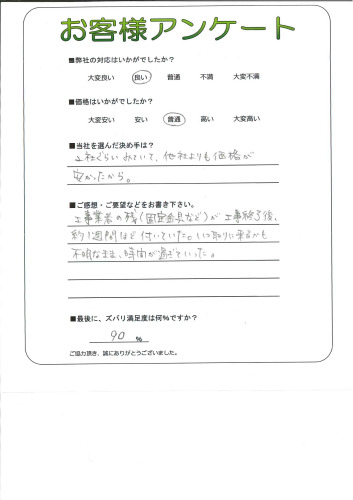 お客様アンケート
■弊社の対応はいかがでしたか？
大変良い 良い 普通 不満 大変不満
■価格はいかがでしたか？
大変安い 安い 普通 高い 大変高い
■当社を選んだ決め手は？
2社ぐらいみていて、他社よりも価格が
安かったから。
■ご感想・ご要望などをお書き下さい。
工事業者の残（固定金具など）が工事終了後、
約1週間ほど付いていた。いつ取りに来るかも
不明なまま、時間が過ぎていった。
■最後に、ズバリ満足度は何%ですか？
90 %
ご協力頂き、誠にありがとうございました。